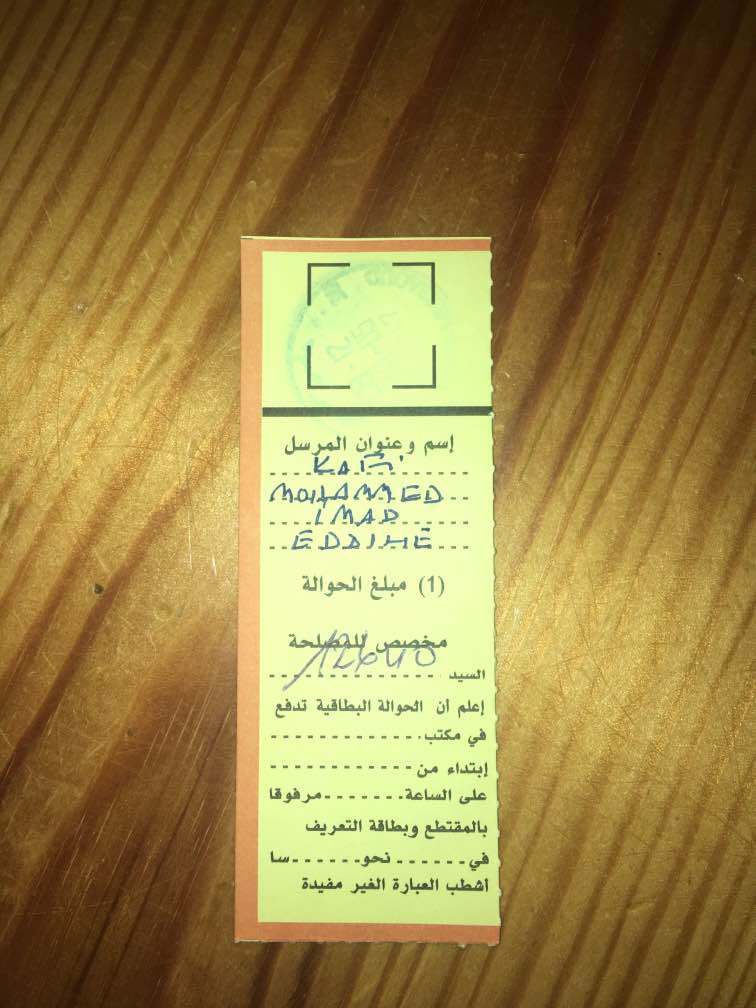 إسم وعنوان المرسل
MOHAMMED
IMAD
EDDINE
(1) مبلغ الحوالة
مخصص للمصلحة
السيد
إعلم أن الحوالة البطاقية تدفع
في مكتب
إبتداء من
على الساعة مرفوقا
بالمقتطع وبطاقة التعريف
في نحو سا
أشطب العبارة الغير مفيدة